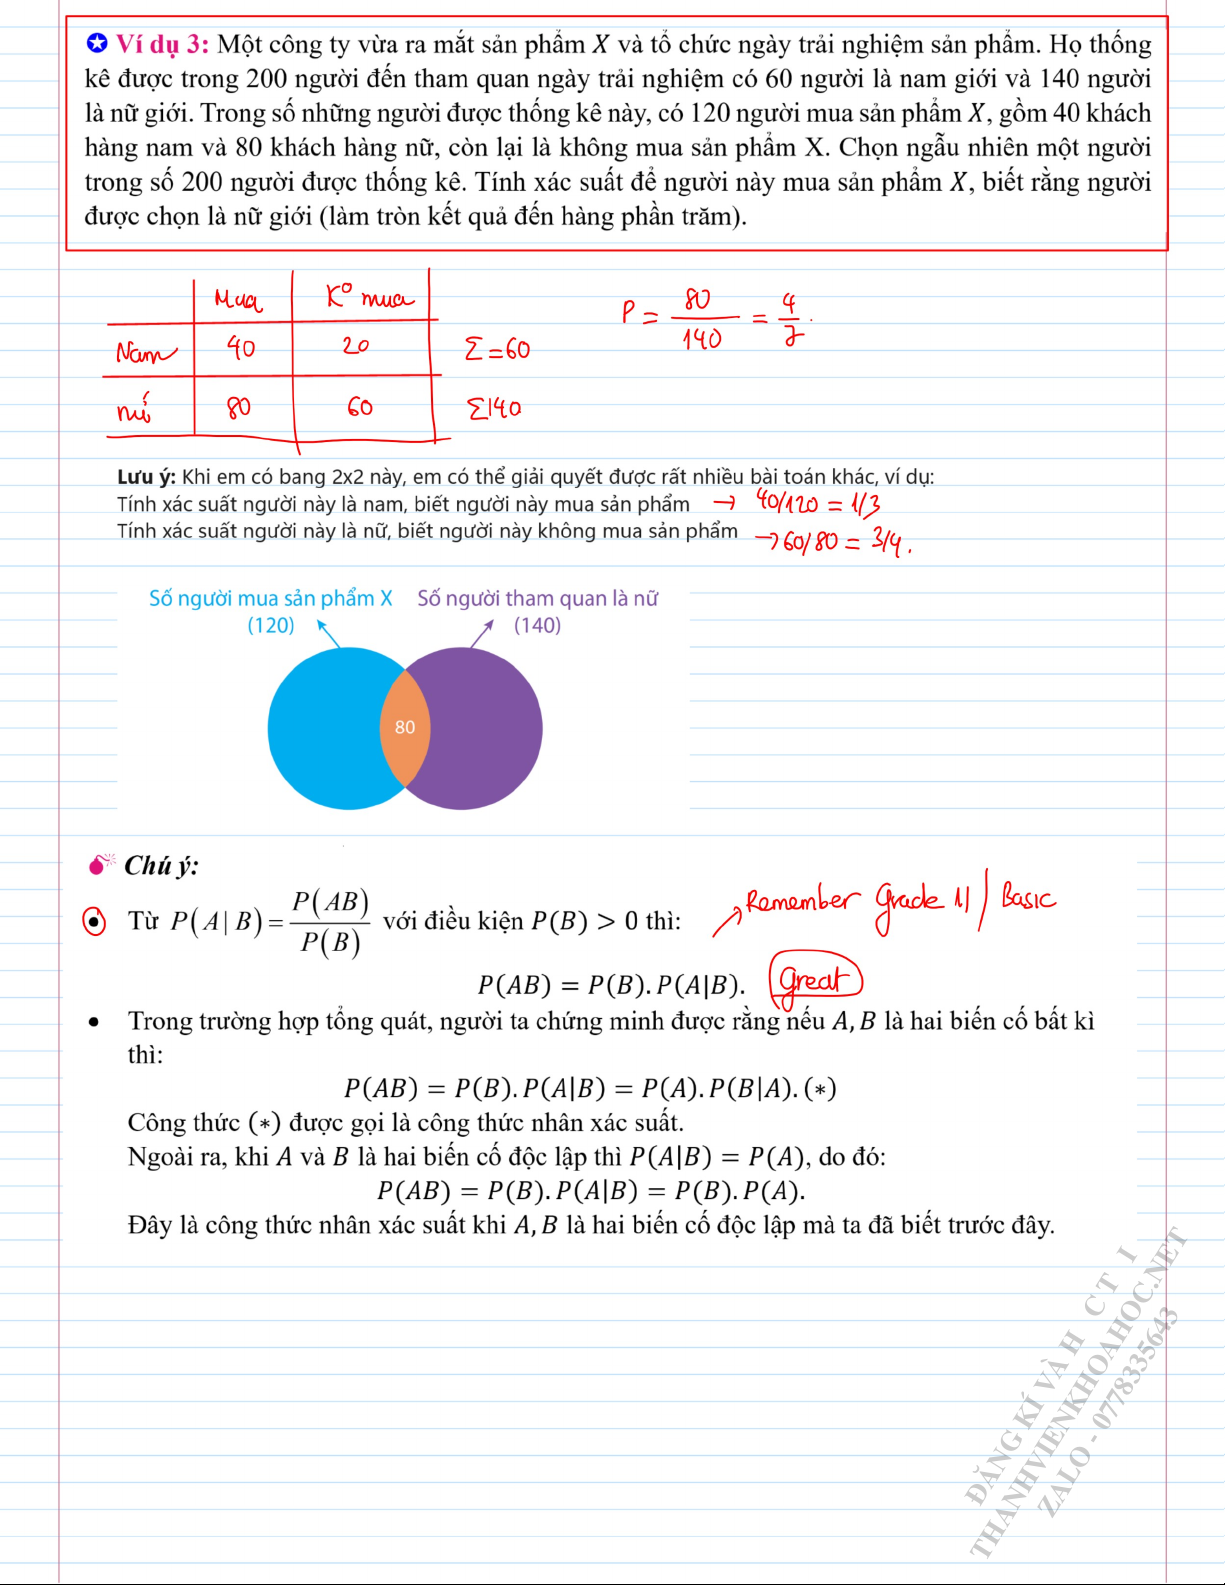 Ví dụ 3: Một công ty vừa ra mắt sản phẩm X và tổ chức ngày trải nghiệm sản phẩm. Họ thống
kê được trong 200 người đến tham quan ngày trải nghiệm có 60 người là nam giới và 140 người
là nữ giới. Trong số những người được thống kê này, có 120 người mua sản phẩm X, gồm 40 khách
hàng nam và 80 khách hàng nữ, còn lại là không mua sản phẩm X. Chọn ngẫu nhiên một người
trong số 200 người được thống kê. Tính xác suất để người này mua sản phẩm X, biết rằng người
được chọn là nữ giới (làm tròn kết quả đến hàng phần trăm).
Mua K° mua
Nam 40 20 Σ=60
nữ 80 60 Σ140
P = 80/140 = 4/7.
Lưu ý: Khi em có bang 2x2 này, em có thể giải quyết được rất nhiều bài toán khác, ví dụ:
Tính xác suất người này là nam, biết người này mua sản phẩm → 40/120 = 1/3
Tính xác suất người này là nữ, biết người này không mua sản phẩm → 60/80 = 3/4.
Số người mua sản phẩm X Số người tham quan là nữ
(120) (140)
80
Chú ý:
Từ P(A|B) = P(AB)/P(B) với điều kiện P(B) > 0 thì: Remember Grade 11 / Basic
P(AB) = P(B).P(A|B). Great
• Trong trường hợp tổng quát, người ta chứng minh được rằng nếu A, B là hai biến cố bất kì
thì:
P(AB) = P(B).P(A|B) = P(A).P(B|A).(∗)
Công thức (∗) được gọi là công thức nhân xác suất.
Ngoài ra, khi A và B là hai biến cố độc lập thì P(A|B) = P(A), do đó:
P(AB) = P(B).P(A|B) = P(B).P(A).
Đây là công thức nhân xác suất khi A, B là hai biến cố độc lập mà ta đã biết trước đây.
ĐĂNG KÍ VÀ H C T I
THANHVIENKHOAHOC.NET
ZALO - 0778335643